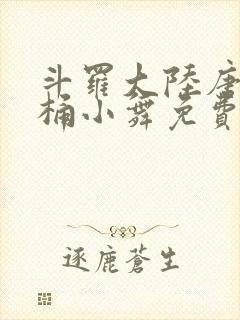 斗羅大陸唐
桶小舞免費
逐鹿蒼生